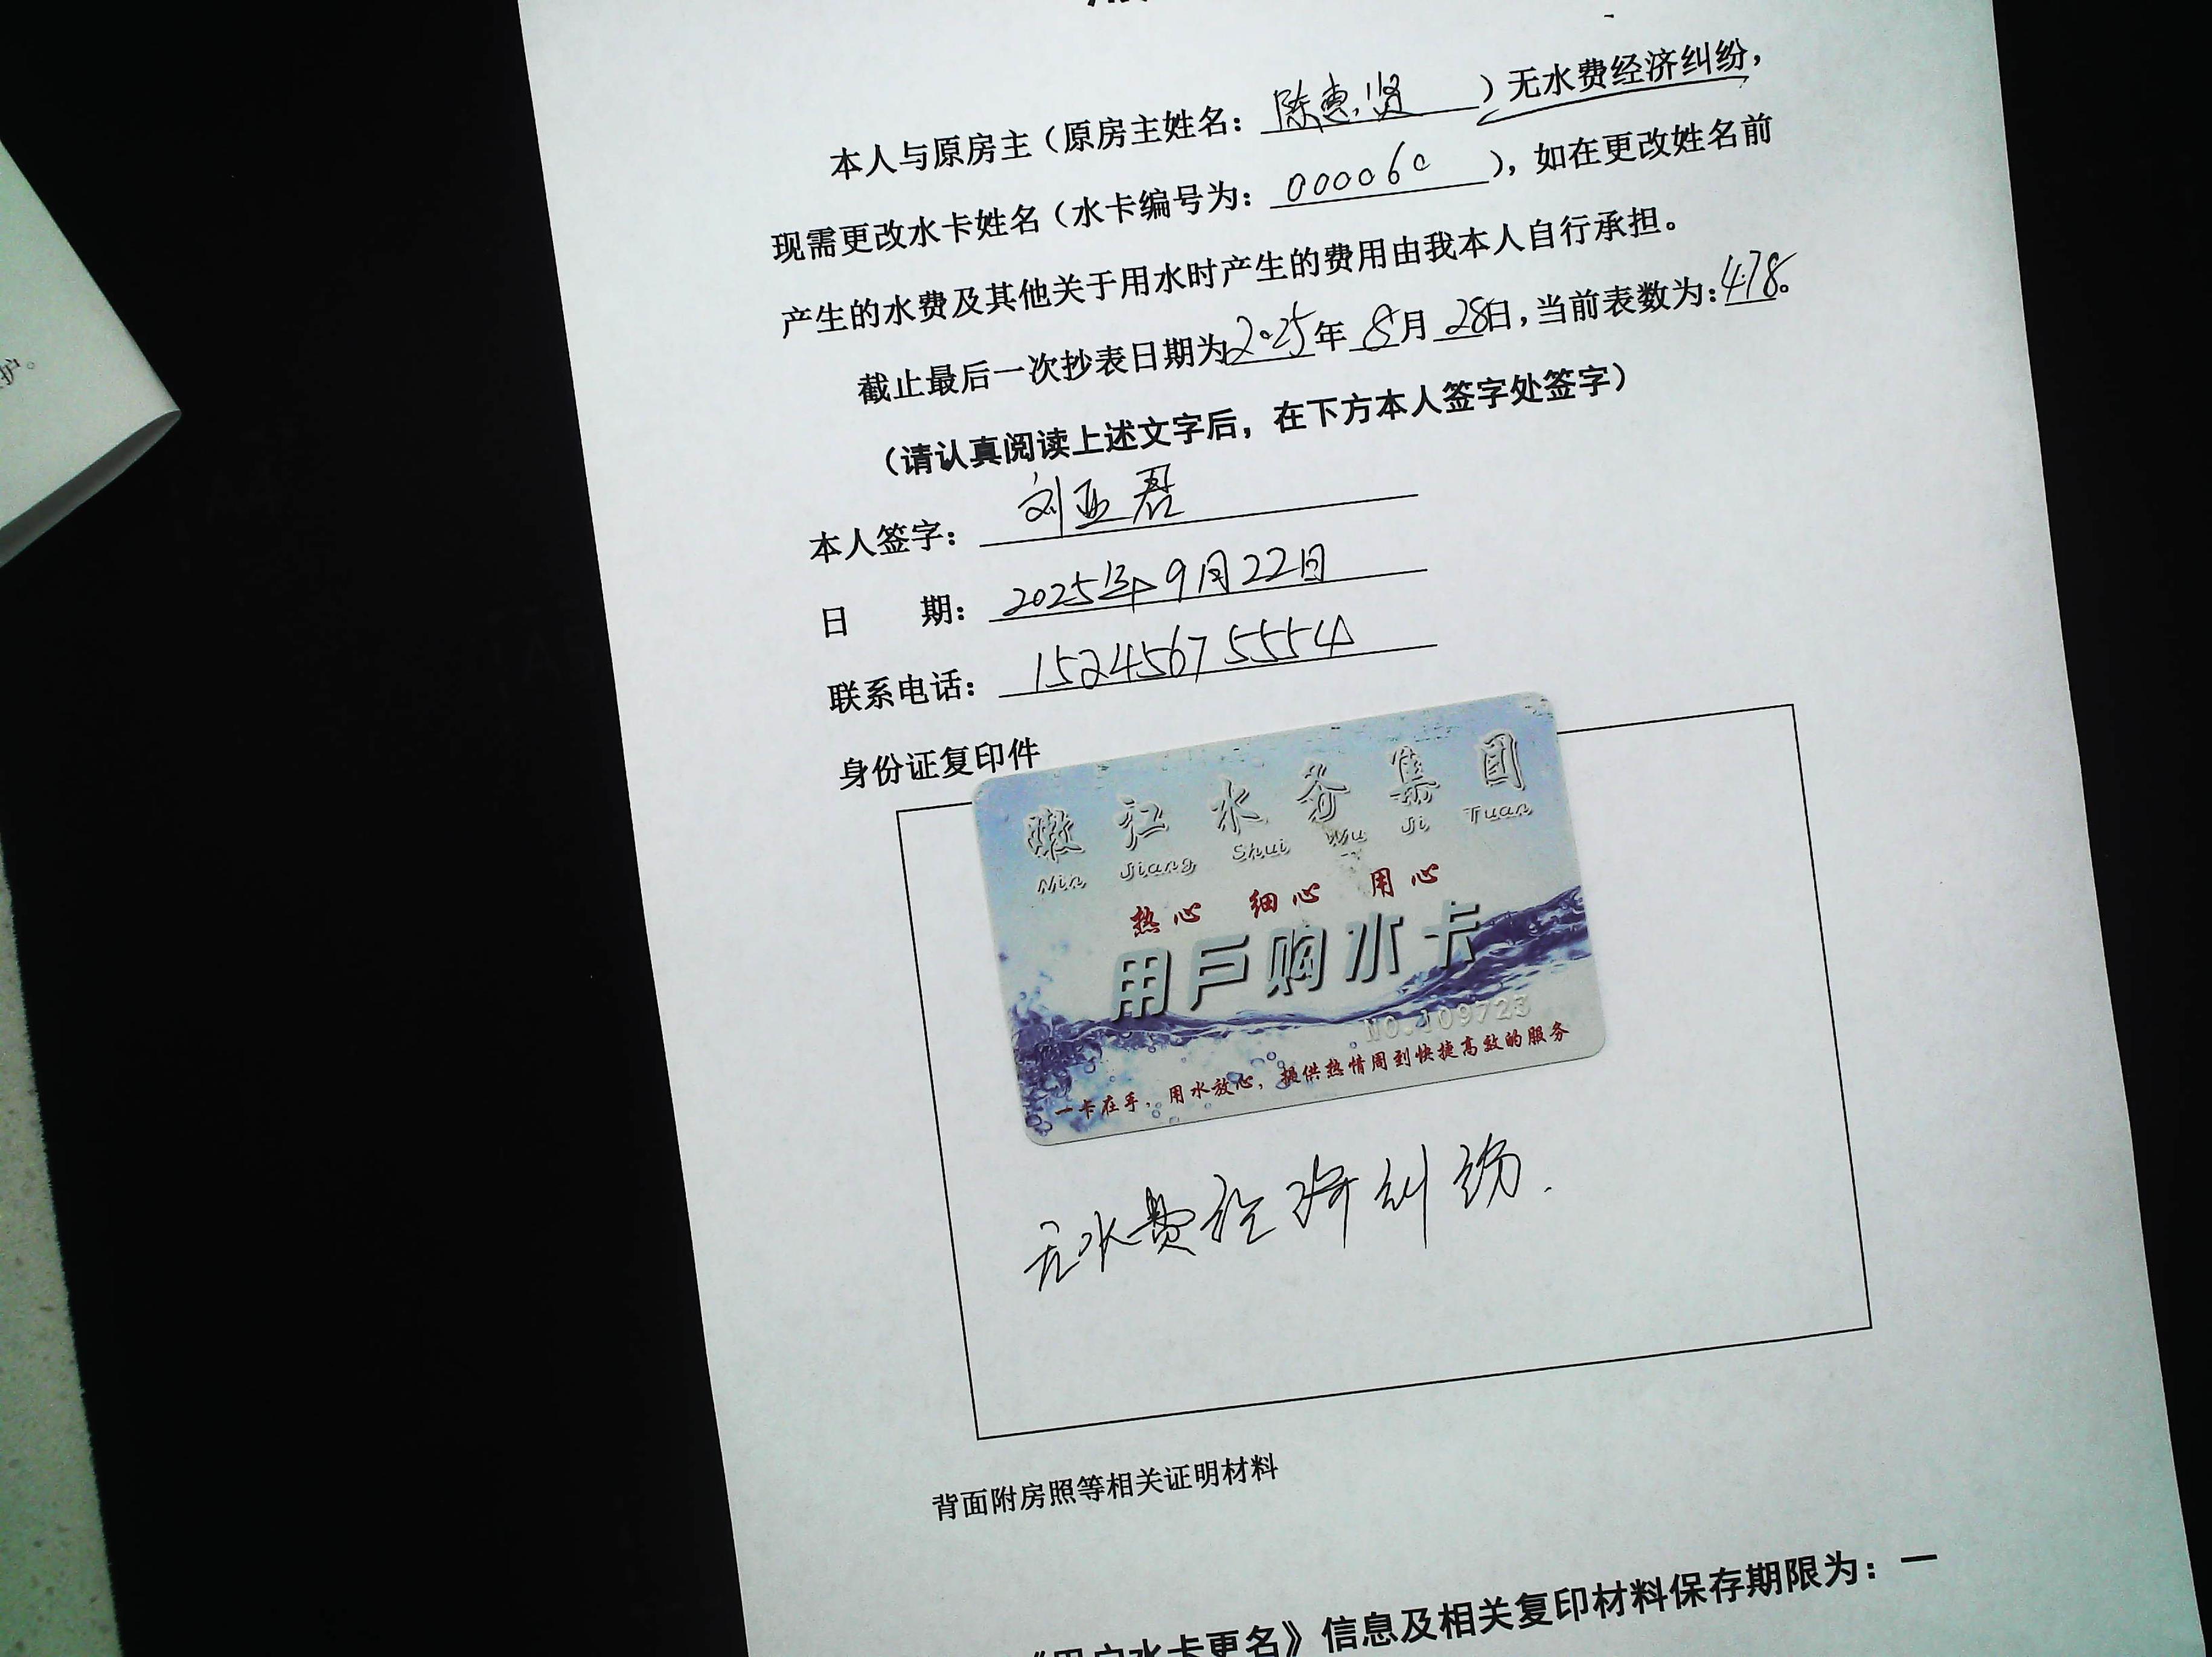 本人与原房主（原房主姓名：陈惠贤）无水费经济纠纷，
现需更改水卡姓名（水卡编号为：000060），如在更改姓名前
产生的水费及其他关于用水时产生的费用由我本人自行承担。
截止最后一次抄表日期为2025年8月28日，当前表数为：478。
（请认真阅读上述文字后，在下方本人签字处签字）
本人签字：刘亚君
日 期：2025年9月22日
联系电话：15245675554
身份证复印件
嫩江水务集团
Nin Jiang Shui Wu Ji Tuan
热心 细心 用心
用户购水卡
NO.109723
一卡在手，用水放心，提供热情周到快捷高效的服务
无水费经济纠纷.
背面附房照等相关证明材料
《用户水卡更名》信息及相关复印材料保存期限为：一
护。